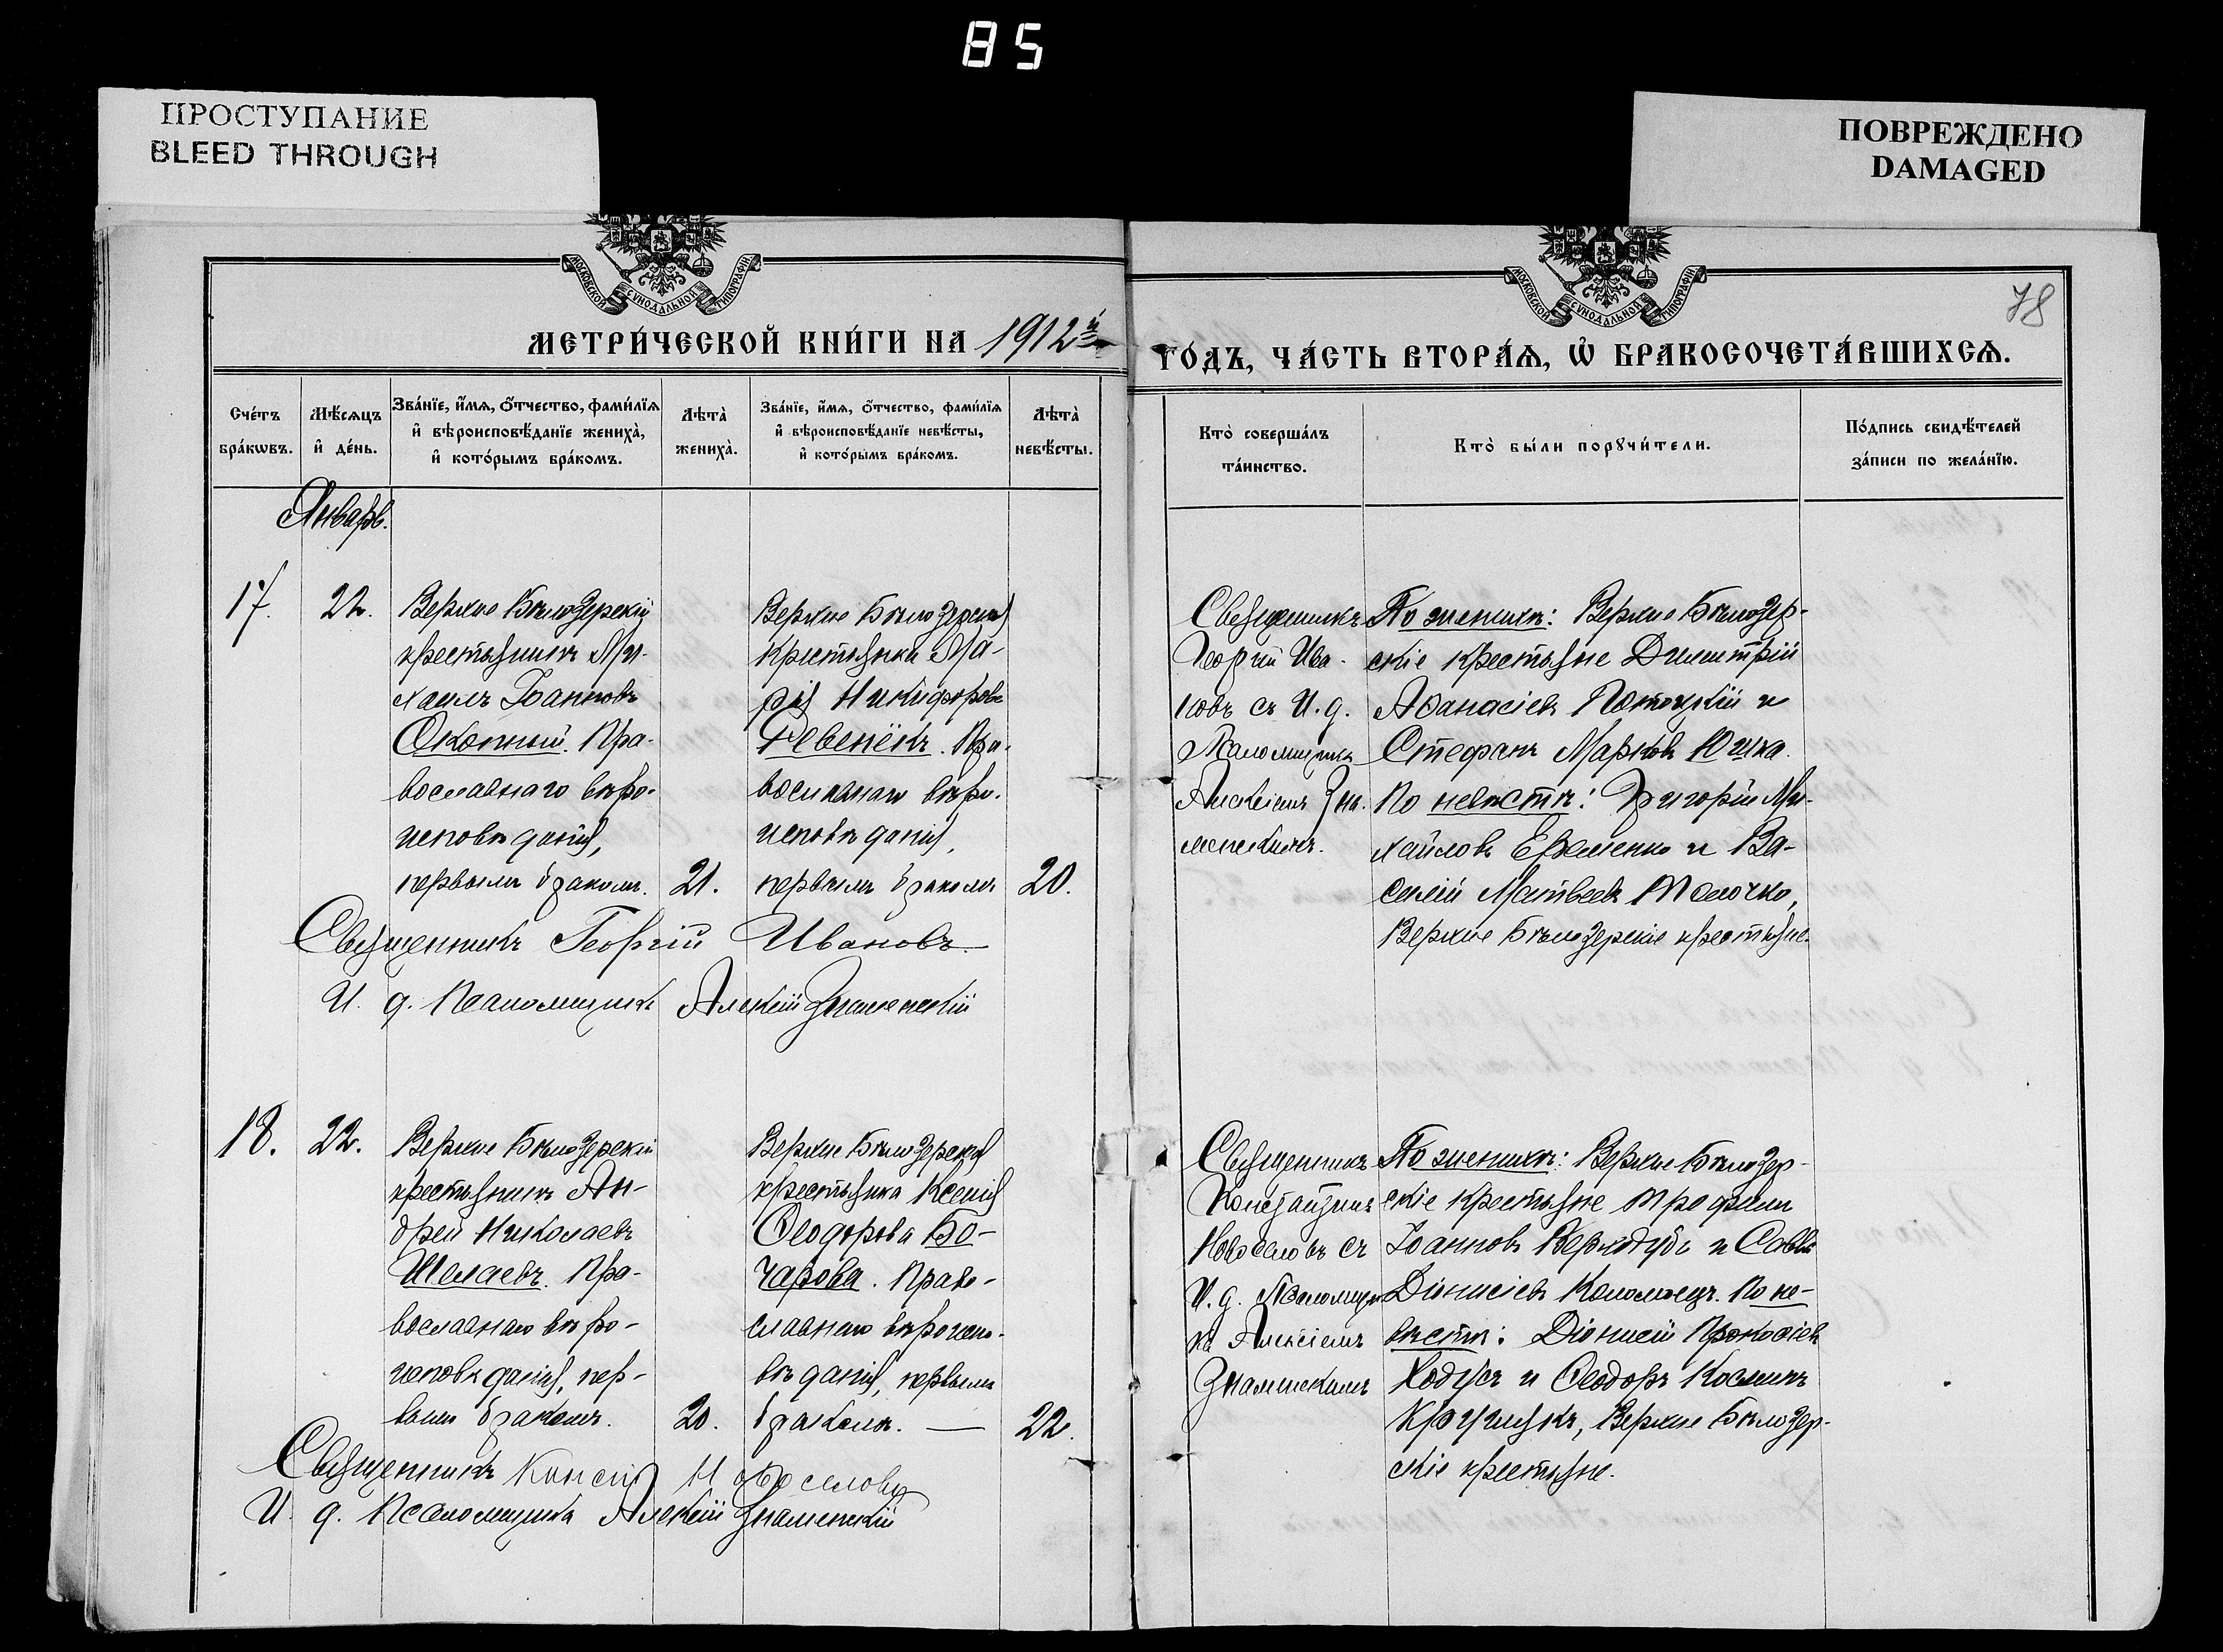 85
ПРОСТУПАНИЕ
BLEED THROUGH
ПОВРЕЖДЕНО
DAMAGED
МОСКОВСКОЙ СѴНОДАЛЬНОЙ ТИПОГРАФІИ
МОСКОВСКОЙ СѴНОДАЛЬНОЙ ТИПОГРАФІИ
78
МЕТРИ́ЧЕСКОЙ КНИ́ГИ НА 1912й
ГО́ДЪ, ЧА́СТЬ ВТОРА́Ѧ, Ѡ҆ БРАКОСОЧЕТА́ВШИХСѦ.
Сче́тъ бра́кѡвъ.
Мѣ́сѧцъ и҆ де́нь.
Зва́нїе, и҆́мѧ, ѻ҆́тчество, фами́лїѧ
и҆ вѣроисповѣ́данїе жениха̀,
и҆ кото́рымъ бра́комъ.
Лѣта̀ жениха̀.
Зва́нїе, и҆́мѧ, ѻ҆́тчество, фами́лїѧ
и҆ вѣроисповѣ́данїе невѣ́сты,
и҆ кото́рымъ бра́комъ.
Лѣта̀ невѣ́сты.
Кто̀ соверша́лъ
та́инство.
Кто̀ бы́ли порꙋчи́тели.
По́дпись свидѣ́телей
за́писи по жела́нїю.
Январь.
17.
22.
Верхне Бѣлозерскій
крестьянинъ Ми-
хаилъ Іоанновъ
Окопный. Пра-
вославнаго вѣро-
исповѣданія,
первымъ бракомъ.
21.
Верхне Бѣлозерская
крестьянка Ма-
рія Никифорова
Ревенёкъ. Пра-
вославнаго вѣро-
исповѣданія,
первымъ бракомъ
20.
Священникъ
Георгій Ива-
новъ съ И. д.
Псаломщика
Алексіемъ Зна-
менскимъ.
По женихѣ: Верхне Бѣлозер-
скіе крестьяне Димитрій
Аѳанасіевъ Потоцкій и
Стефанъ Марковъ Юшка.
По невѣстѣ: Григорій Ми-
хайловъ Ефименко и Ва-
силій Матвеевъ Толочко,
Верхне Бѣлозерскіе крестьяне.
Священникъ Георгій Ивановъ
И. д. Псаломщика Алексій Знаменскій
18.
22.
Верхне Бѣлозерскій
крестьянинъ Ан-
дрей Николаевъ
Шелаевъ. Пра-
вославнаго вѣро-
исповѣданія, пер-
вымъ бракомъ.
20.
Верхне Бѣлозерская
крестьянка Ксенія
Ѳеодорова Бо-
чарова. Право-
славнаго вѣроиспо-
вѣданія, первымъ
бракомъ. —
22.
Священникъ
Константинъ
Новоселовъ съ
И. д. Псаломщи-
ка Алексіемъ
Знаменскимъ
По женихѣ: Верхне Бѣлозер-
скіе крестьяне Трофимъ
Іоанновъ Верхотубъ и Савва
Діонисіевъ Коломоецъ. По не-
вѣстѣ: Діонисій Прокофіевъ
Ходусъ и Ѳеодоръ Косминъ
Кручиякъ, Верхне Бѣлозер-
скіе крестьяне.
Священникъ Новоселовъ
И. д. Псаломщика Алексій Знаменскій